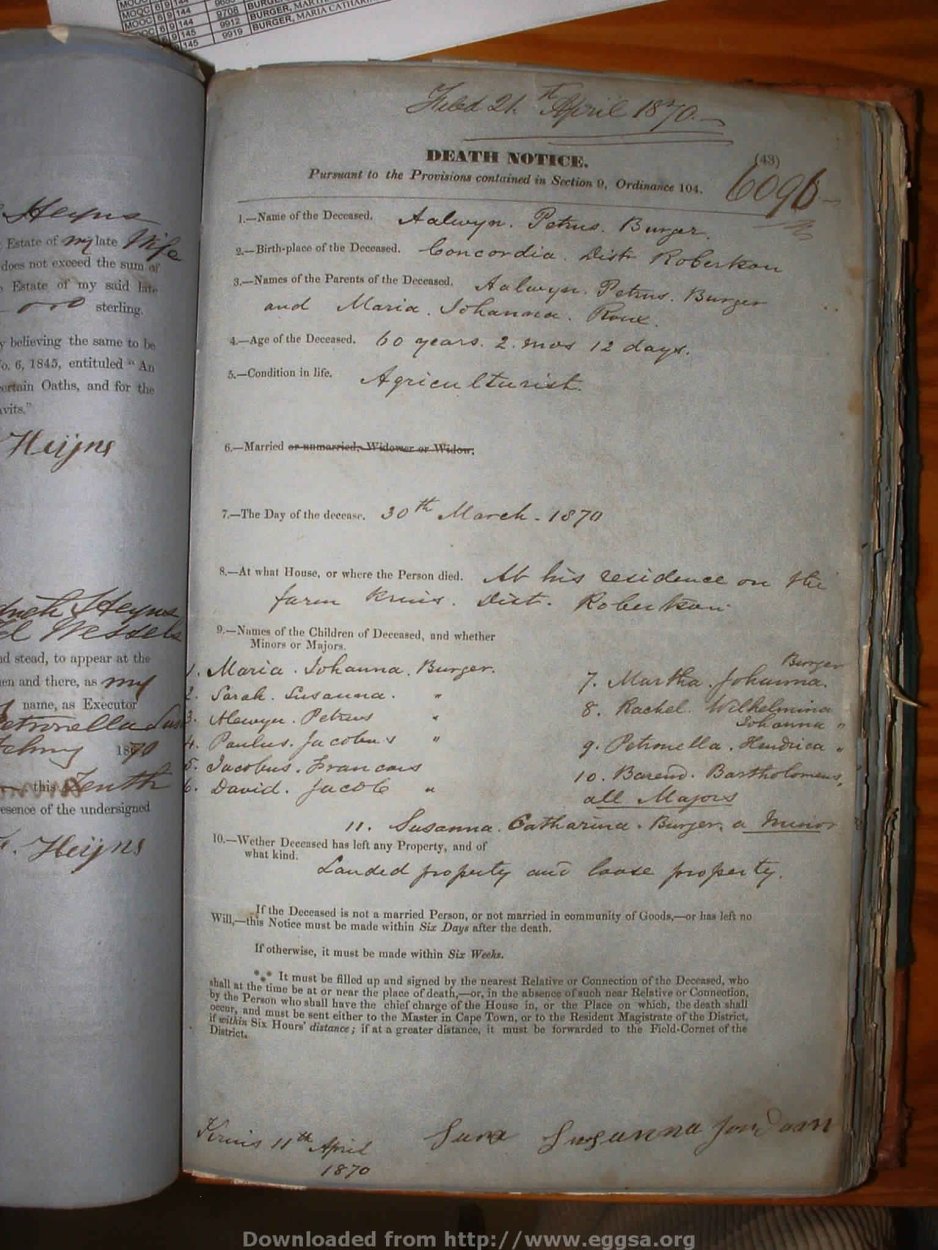 MOOC 6 9 144
MOOC 6 9 144 9708 BURGER, MART
MOOC 6 9 145 9912 BURGER, MARIA CATHARI
6 9 145 9919
Heyns
Estate of my late Wife
does not exceed the sum of
Estate of my said late
sterling.
believing the same to be
o. 6, 1845, entituled "An
ertain Oaths, and for the
vits."
Heijns
Heyns
Wessels
d stead, to appear at the
en and there, as my
name, as Executor
etronella Sus
1870
this Tenth
esence of the undersigned
. Heijns
Filed 21st April 1870.
DEATH NOTICE. (43)
Pursuant to the Provisions contained in Section 9, Ordinance 104. 6096
1.—Name of the Deceased. Aalwyn. Petrus. Burger.
2.—Birth-place of the Deceased. Concordia. Distr Robertson
3.—Names of the Parents of the Deceased. Aalwyn. Petrus. Burger
and Maria. Johanna. Roux.
4.—Age of the Deceased. 60 years. 2. mos 12 days.
5.—Condition in life. Agriculturist.
6.—Married or unmarried; Widower or Widow;
7.—The Day of the decease. 30th March. 1870
8.—At what House, or where the Person died. At his residence on the
farm Kruis. Dist. Robertson.
9.—Names of the Children of Deceased, and whether
Minors or Majors.
1. Maria. Johanna. Burger.
2. Sarah. Susanna. "
3. Alewyn. Petrus "
4. Paulus. Jacobus "
5. Jacobus. Francois
6. David. Jacob "
Burger
7. Martha. Johanna.
8. Rachel. Wilhelmina
Johanna "
9. Petronella. Hendrica "
10. Barend. Bartholomeus "
all Majors
11. Susanna. Catharina. Burger, a Minor
10.—Wether Deceased has left any Property, and of
what kind.
Landed property and loose property.
If the Deceased is not a married Person, or not married in community of Goods,—or has left no
Will,—this Notice must be made within Six Days after the death.
If otherwise, it must be made within Six Weeks.
*** It must be filled up and signed by the nearest Relative or Connection of the Deceased, who
shall at the time be at or near the place of death,—or, in the absence of such near Relative or Connection,
by the Person who shall have the chief charge of the House in, or the Place on which, the death shall
occur, and must be sent either to the Master in Cape Town, or to the Resident Magistrate of the District,
if within Six Hours' distance; if at a greater distance, it must be forwarded to the Field-Cornet of the
District.
Kruis 11th April
1870
Sara Susanna Jordaan
Downloaded from http://www.eggsa.org